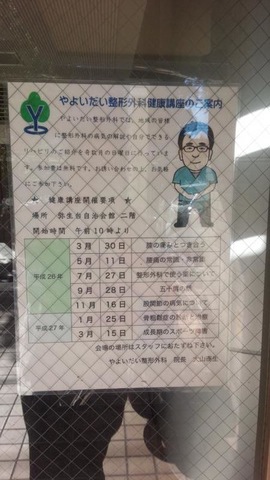 やよいだい整形外科健康講座のご案内
やよいだい整形外科では、地域の皆様
に整形外科の病気の解説や自分でできる
リハビリのご紹介を奇数月の日曜日に行っていま
す。参加費は無料です。お誘いあわせの上、お気軽
にご参加下さい。
★ 健康講座開催要項 ★
場所 弥生台自治会館 二階
開始時間 午前10時より
平成26年
3月 30日 膝の痛みとつき合う
5月 11日 腰痛の常識・非常識
7月 27日 整形外科で使う薬について
9月 28日 五十肩の話
11月 16日 股関節の病気について
平成27年
1月 25日 骨粗鬆症の診断と治療
3月 15日 成長期のスポーツ障害
会場の場所はスタッフにおたずね下さい。
やよいだい整形外科 院長 大山